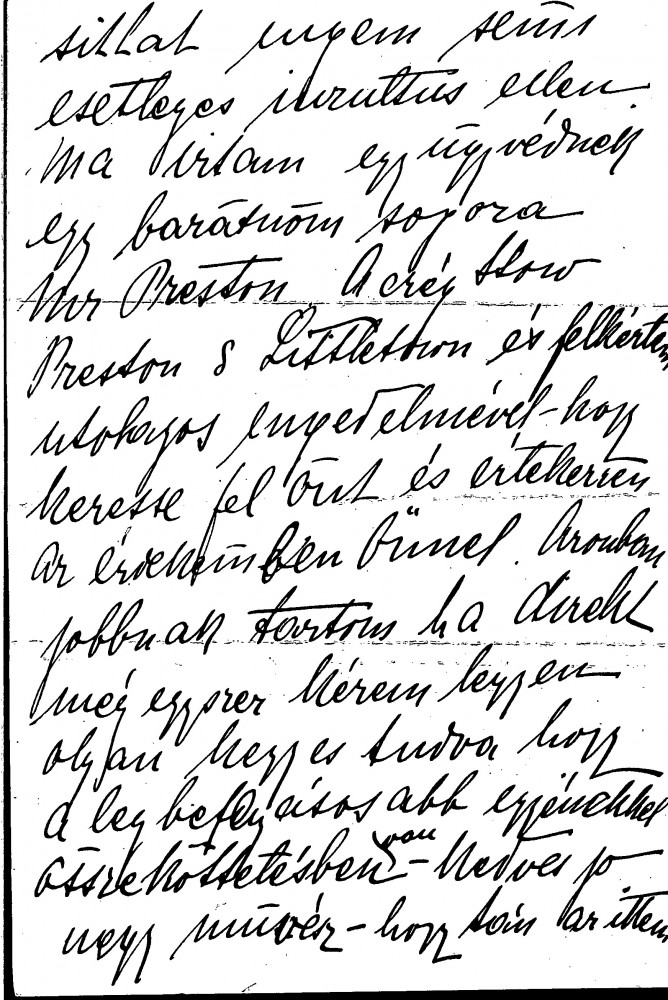 sittat engem semi
esetleges insultus ellen.
Ma írtam egy ügyvédnek
egy barátnőm sogora
Mr Preston. A cég Stow
Preston & Littletown és felkértem
utolagos engedelmével - hogy
keresse fel Önt és értekezzen
az érdekemben Önnel. Azonban
jobbnak tartom ha direkt
még egyszer kérem legyen
olyan kegyes tudva hogy
a legbefolyásosabb egyénekkel
összeköttetésben van - kedves jo
nagy művész - hogy tán az ittem